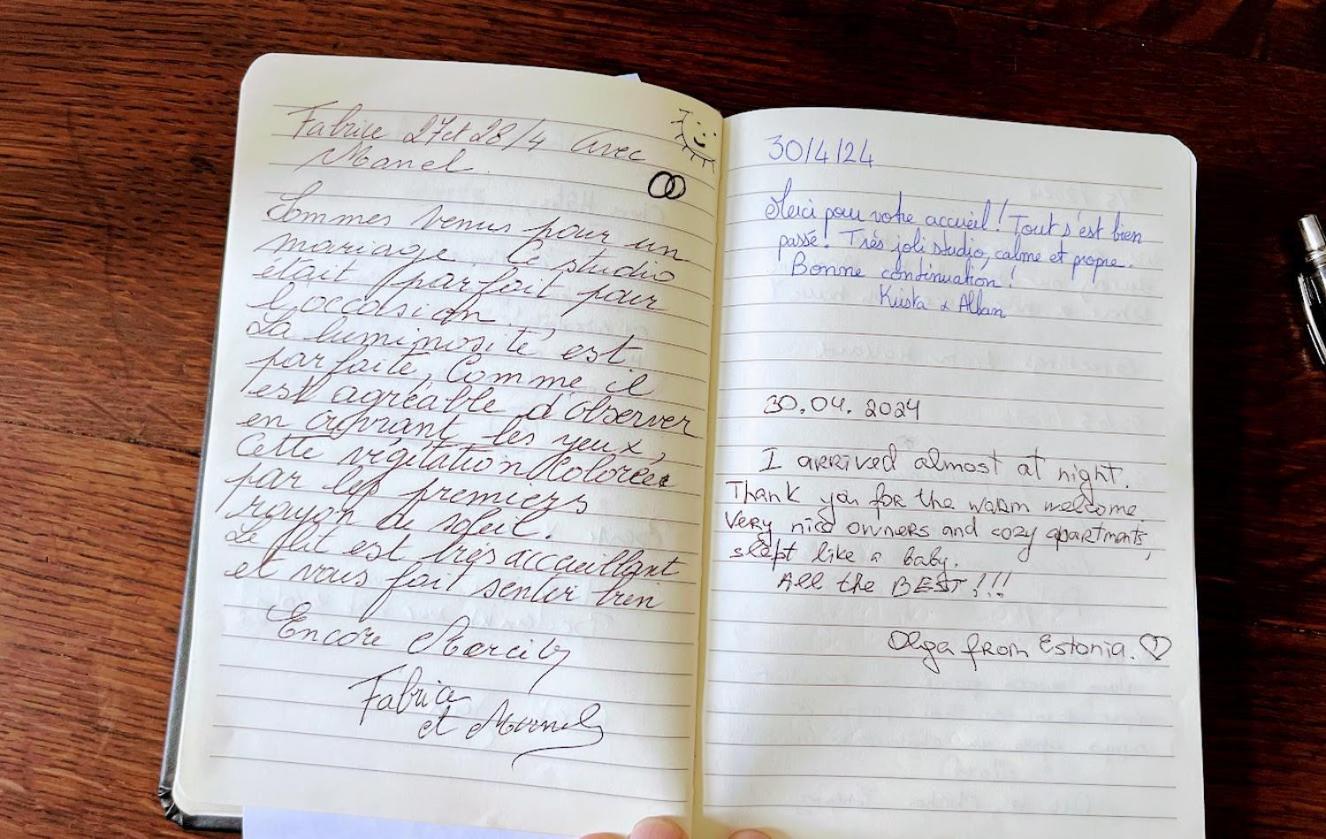 Fabrice 27 et 28/4 avec
Manel.
Sommes venus pour un
mariage. Ce studio
était parfait pour
l'occasion.
La luminosité est
parfaite, Comme il
est agréable d'observer
en ouvrant les yeux,
Cette végétation Colorée
par les premiers
rayon du soleil.
Le lit est très accueillant
et vous fait sentir bien
Encore Merci
Fabrice
et Manel
30/4/24
Merci pour votre accueil! Tout s'est bien
passé! Très joli studio, calme et propre.
Bonne continuation!
& Alban
30.04.2024
I arrived almost at night.
Thank you for the warm welcome
Very nice owners and cozy apartments,
slept like a baby.
All the BEST!!!
Olga from Estonia.